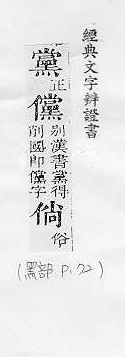 經典文字辯證書
黨正
儻別漢書黨得
削國即儻字
倘俗
(黑部 P.72)